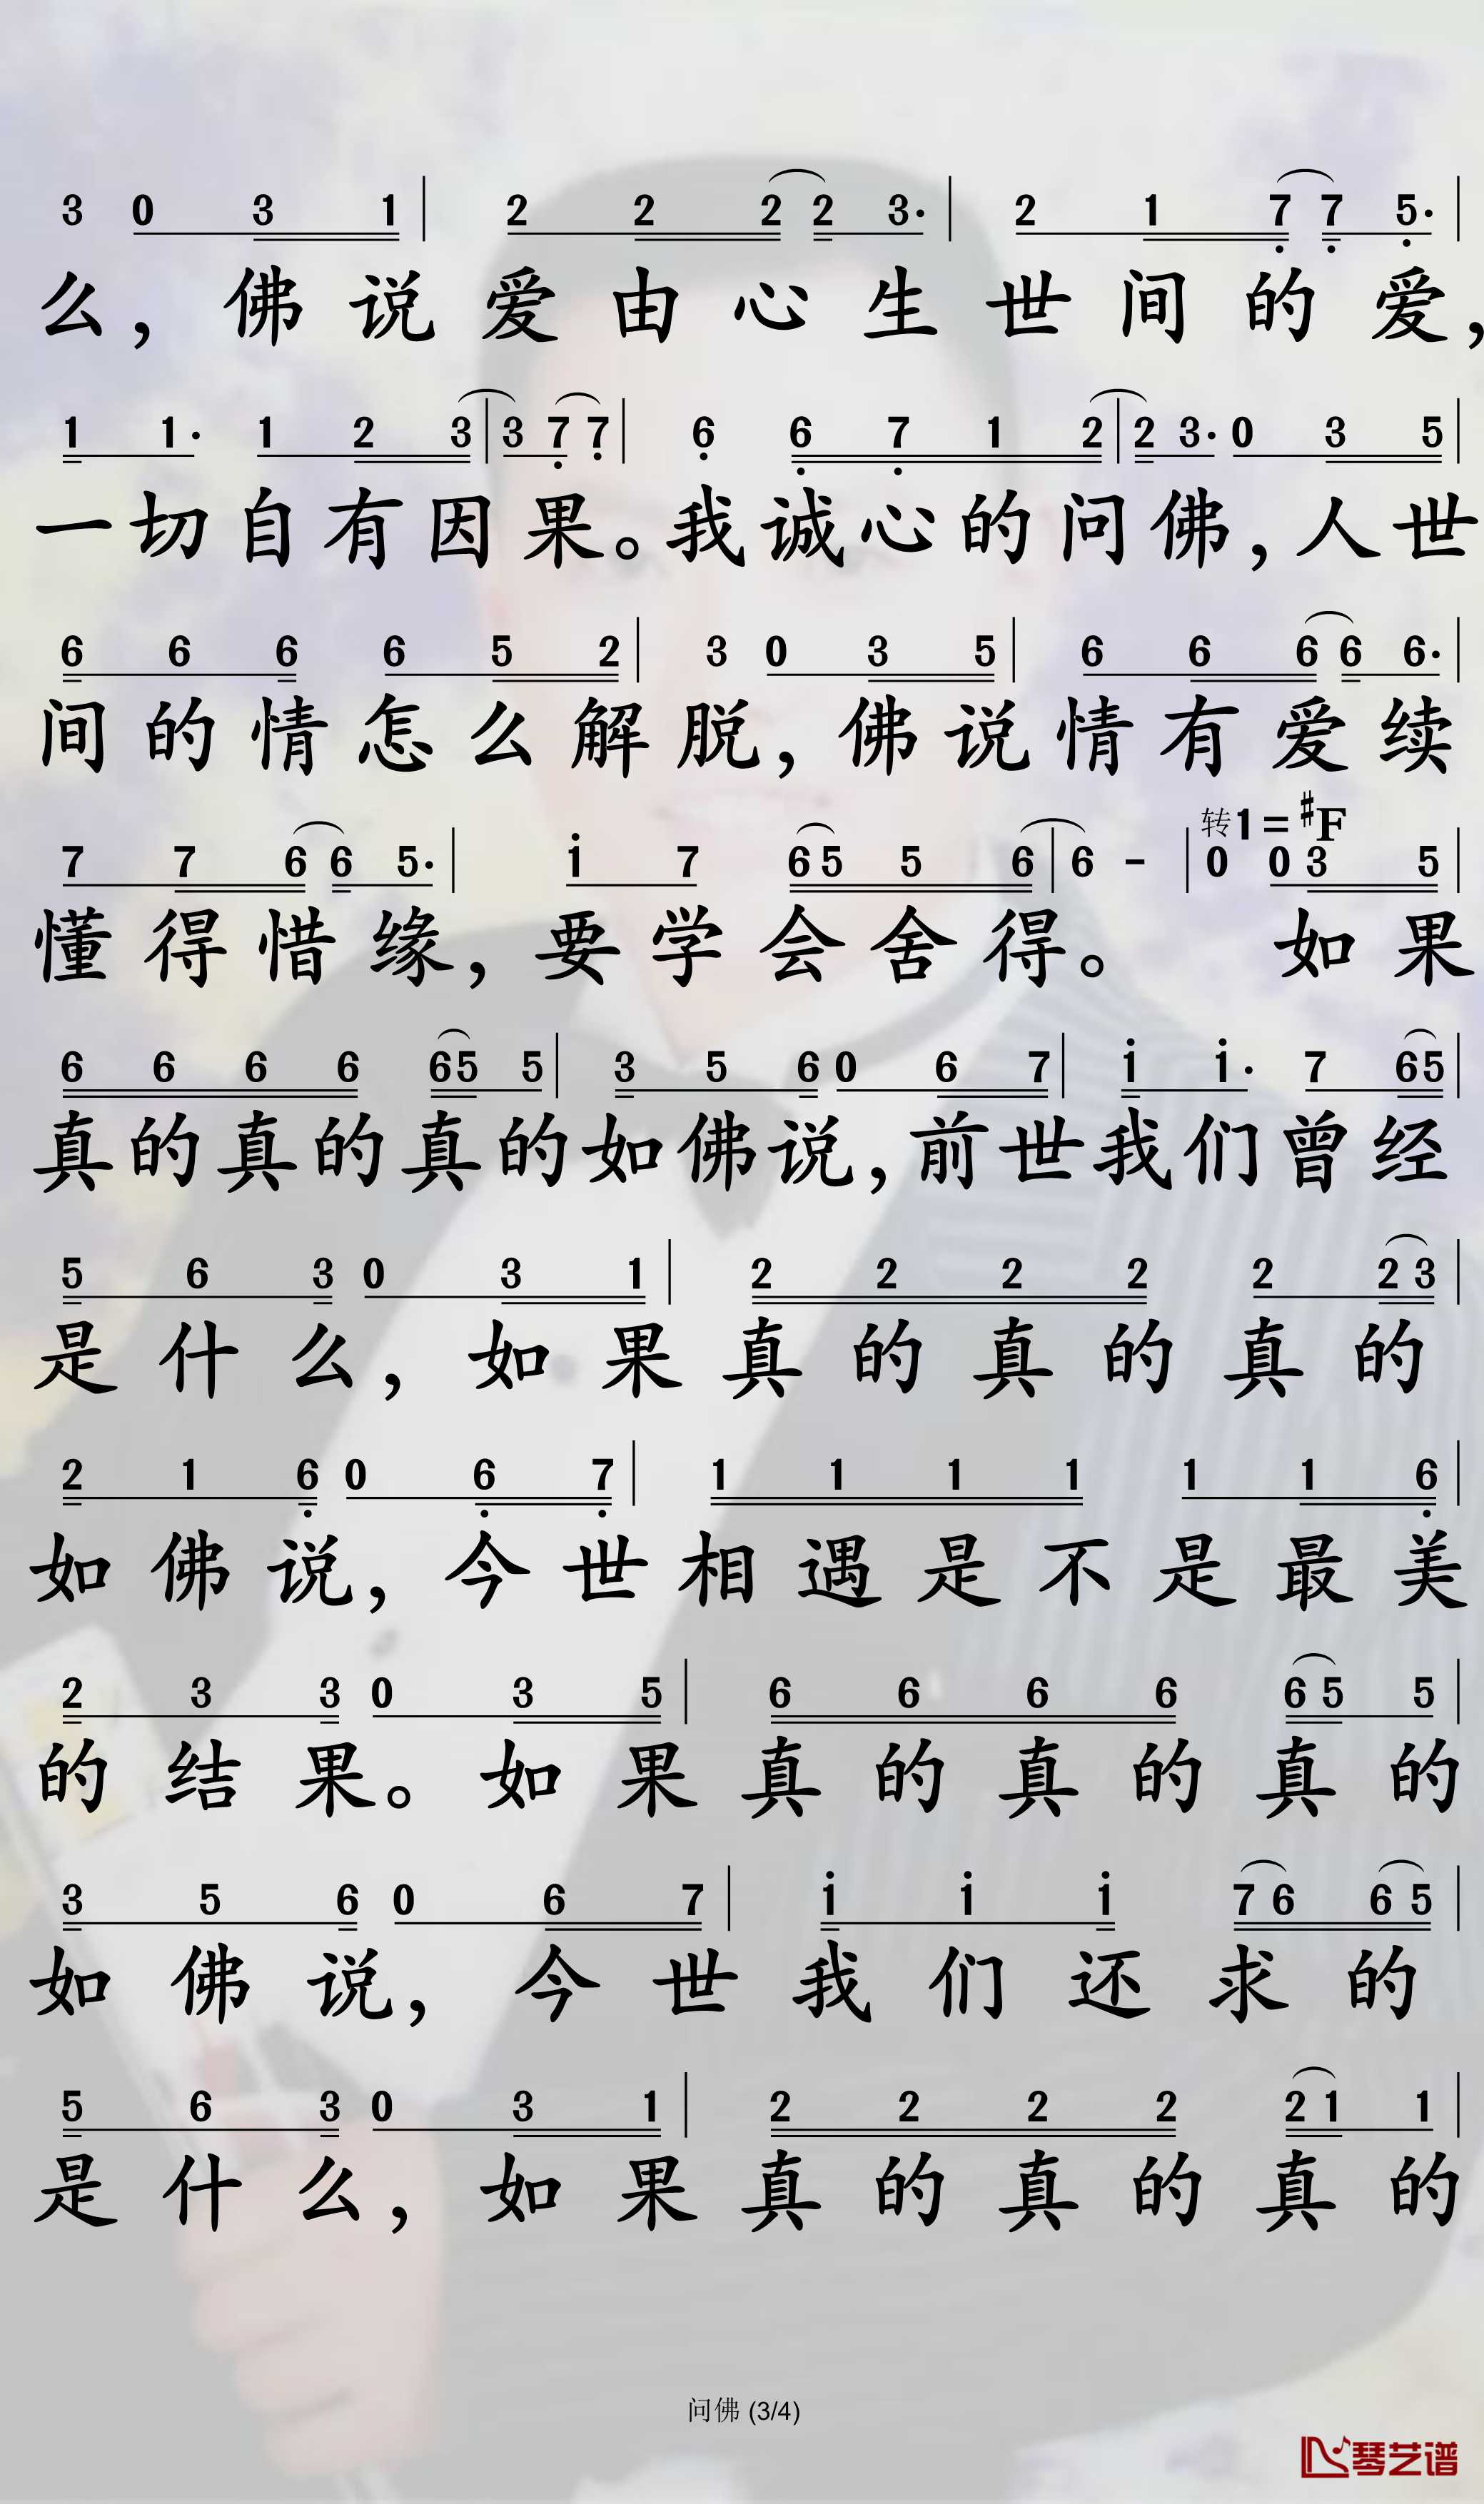 3 0 3 1 | 2 2 2 2 3· | 2 1 7 7 5· |
么，佛说爱由心生世间的爱，
1 1· 1 2 3 | 3 7 7 | 6 6 7 1 2 | 2 3· 0 3 5 |
一切自有因果。我诚心的问佛，人世
6 6 6 6 5 2 | 3 0 3 5 | 6 6 6 6 6· |
间的情怎么解脱，佛说情有爱续
转1=♯F
7 7 6 6 5· | i 7 6 5 5 6 | 6 - | 0 0 3 5 |
懂得惜缘，要学会舍得。 如果
6 6 6 6 6 5 5 | 3 5 6 0 6 7 | i i· 7 6 5 |
真的真的真的如佛说，前世我们曾经
5 6 3 0 3 1 | 2 2 2 2 2 2 3 |
是什么，如果真的真的真的
2 1 6 0 6 7 | 1 1 1 1 1 1 6 |
如佛说，今世相遇是不是最美
2 3 3 0 3 5 | 6 6 6 6 6 5 5 |
的结果。如果真的真的真的
3 5 6 0 6 7 | i i i 7 6 6 5 |
如佛说，今世我们还求的
5 6 3 0 3 1 | 2 2 2 2 2 1 1 |
是什么，如果真的真的真的
问佛 (3/4)
琴艺谱